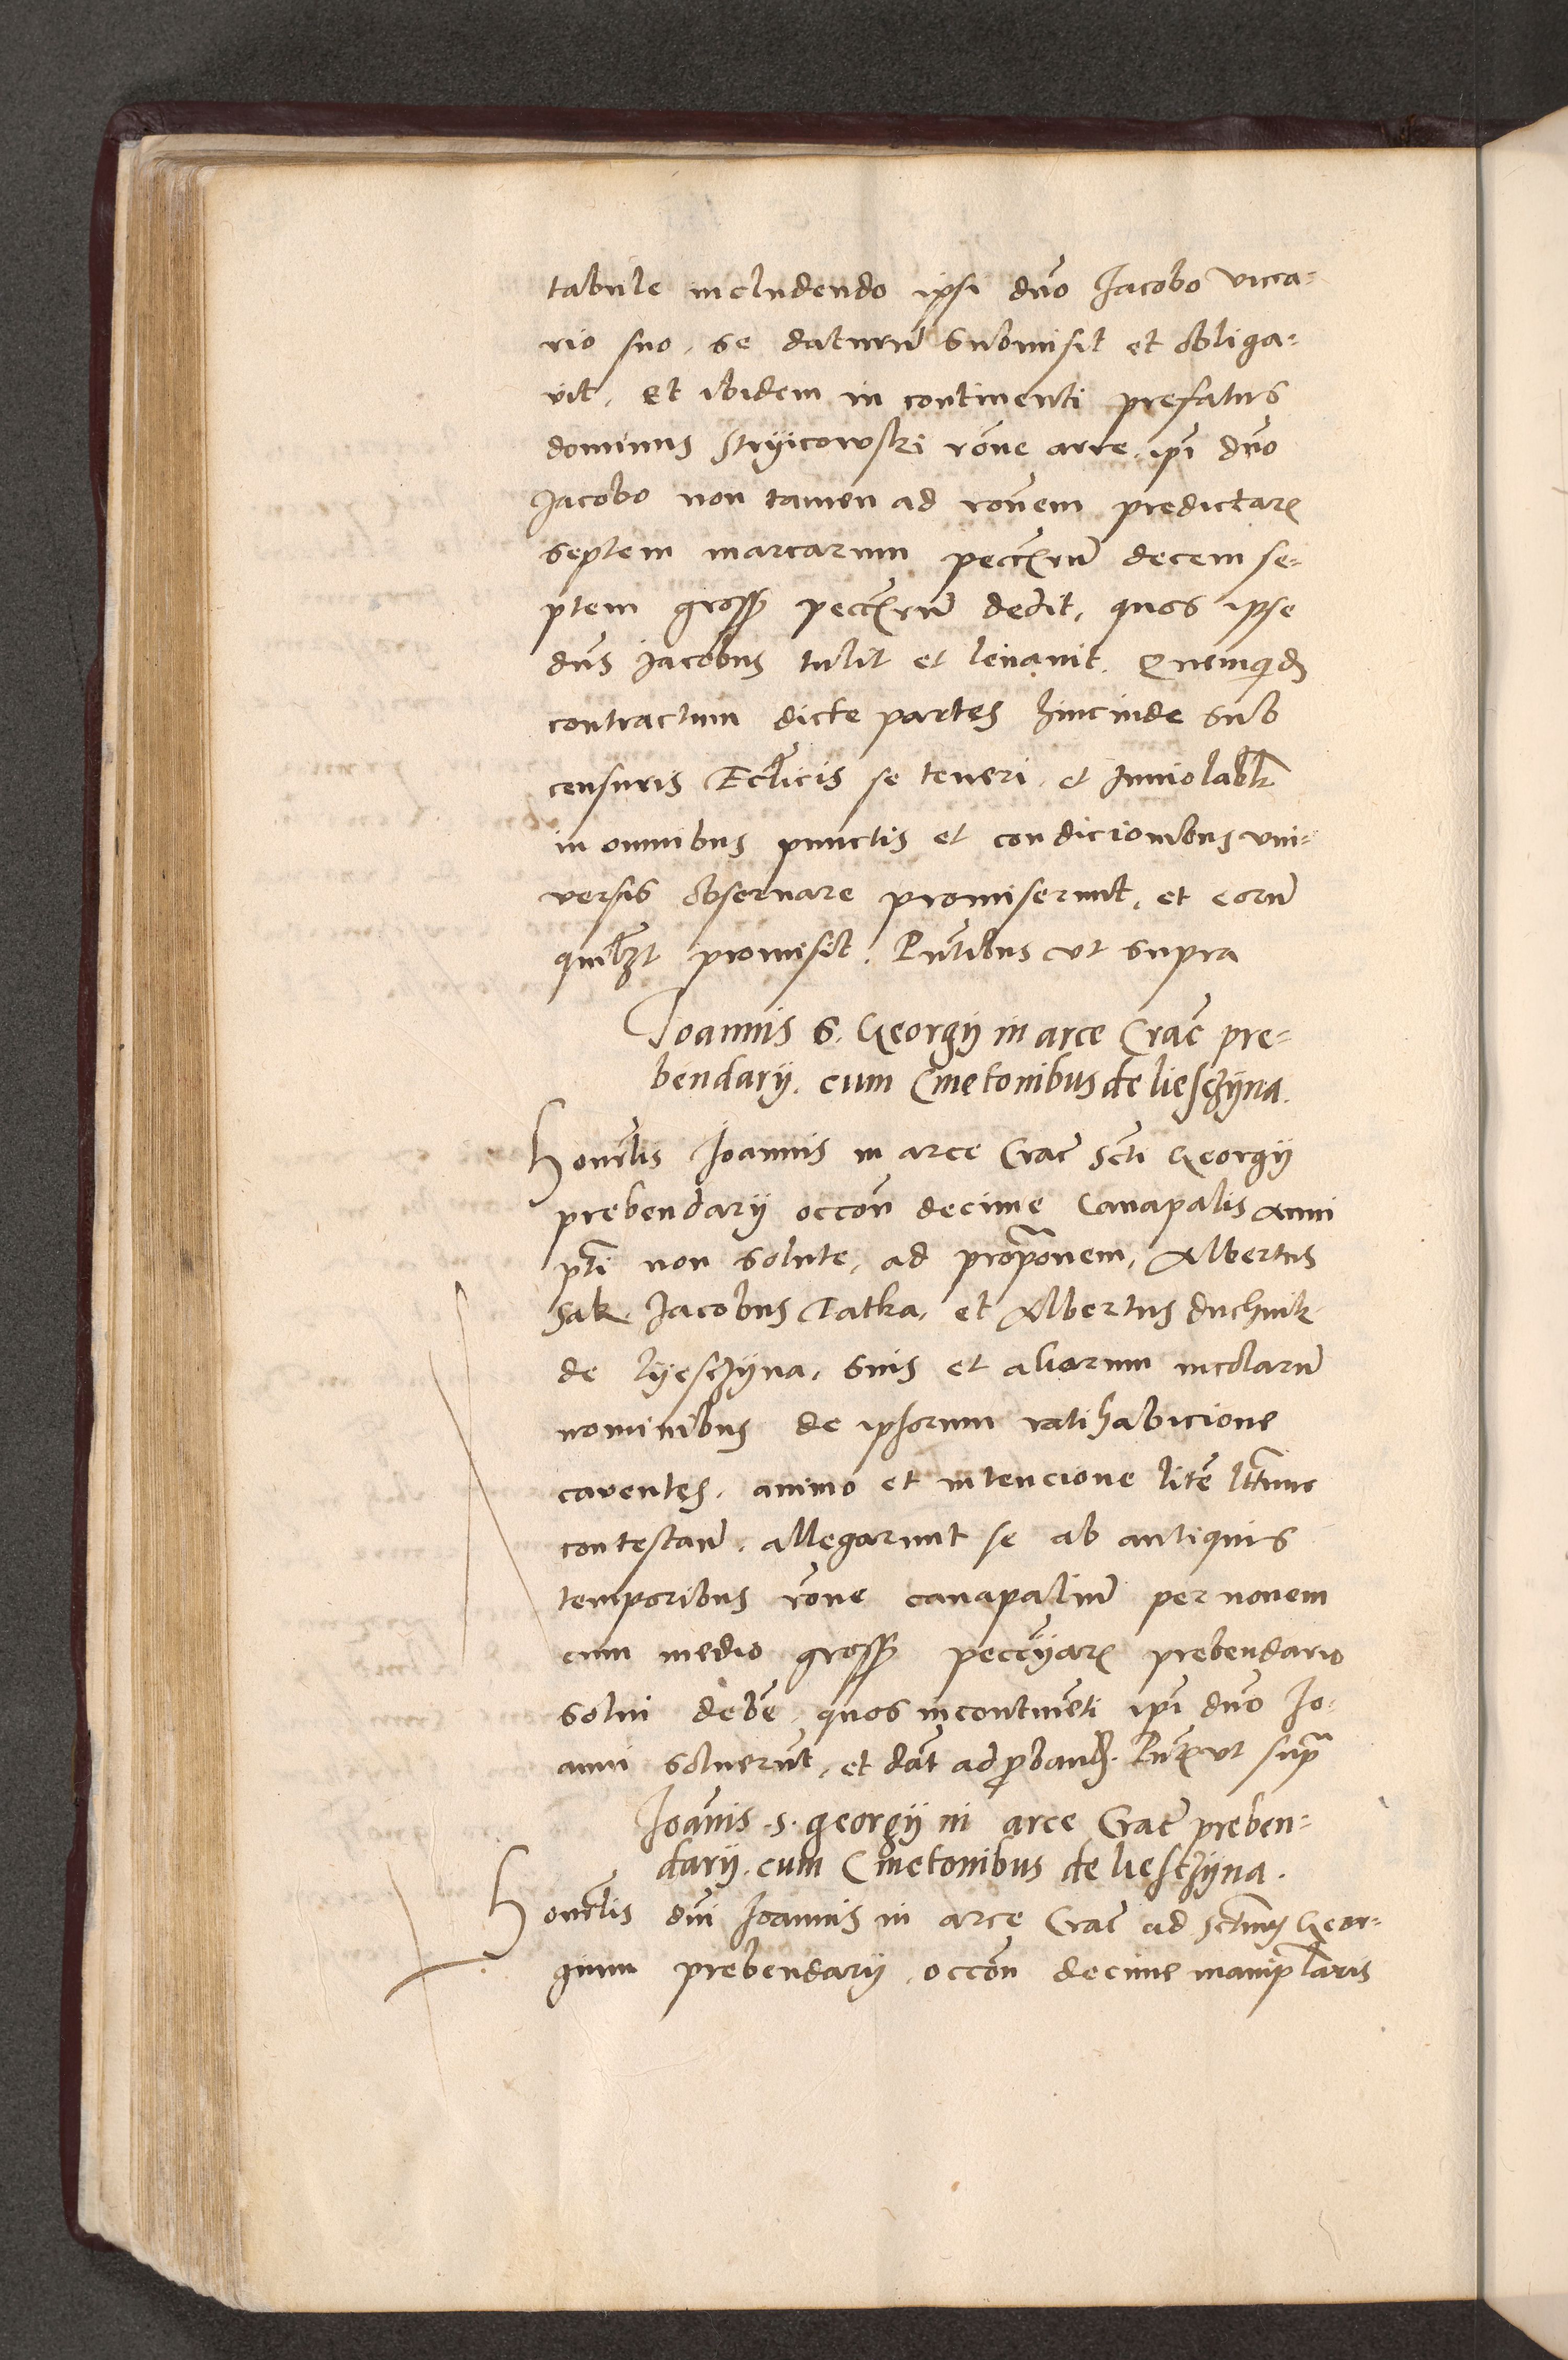 tabule includendo ipsi dno Jacobo vica-
rio suo, se daturu submisit et obliga-
vit, et ibidem in continenti prefatus
dominus Stryicowski rone arre, ipi dno
Jacobo non tamen ad ronem predictar
septem marcarum decem se-
ptem gross dedit, quos ipse
dns Jacobus tulit et levavit. Quemquid
contractum dicte partes hincinde sub
censuris Ecclicis se teneri, et Inviolabilr
in omnibus punctis et condicionibus uni-
versis observare promiserunt, et eoru
quilbzt promisit. Pntibus ut supra
Joannis S. Georgij in arce Crac pre-
bendarij. cum Cmetonibus de liesczyna.
Honrlis Joannis in arce Crac Scti Georgij
prebendarij occon decime Canapalis anni
pti non solute, ad proponem, Albertus
Sak Jacobus Tatka, et Albertus duchnik
de lyesczyna, suis et aliorum incolaru
nominibus de ipsorum ratihabicione
caventes, animo et intencione lite
contestan, allegarunt se ab antiquis
temporibus rone canapaliu per novem
cum medio gross prebendario
solui debe, quos incontineti ipi dno Jo-
anni soluerut, et dat ad proband. Pntr ut supra
Joanis . S . georgij in arce Crac preben-
darij. cum Cmetonibus de liesczyna.
Honrlis dni Joannis in arce Crac ad Sctum Geor-
gium prebendarij, occon decime maniplaris